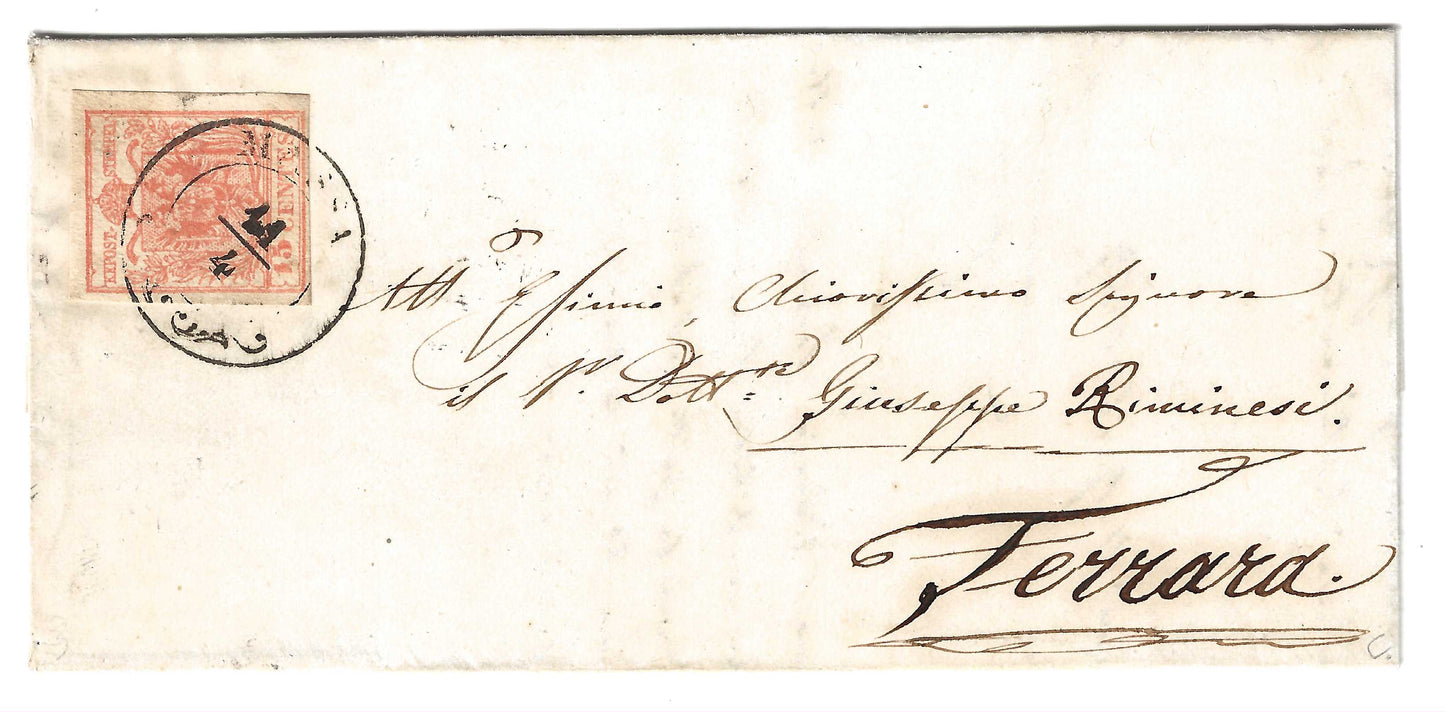 KKPOST-STEMPEL
15 CENTES
MASSA
All' Esimio, Chiarissimo Signore
il Sr. Dottre Giuseppe Riminesi.
Ferrara.